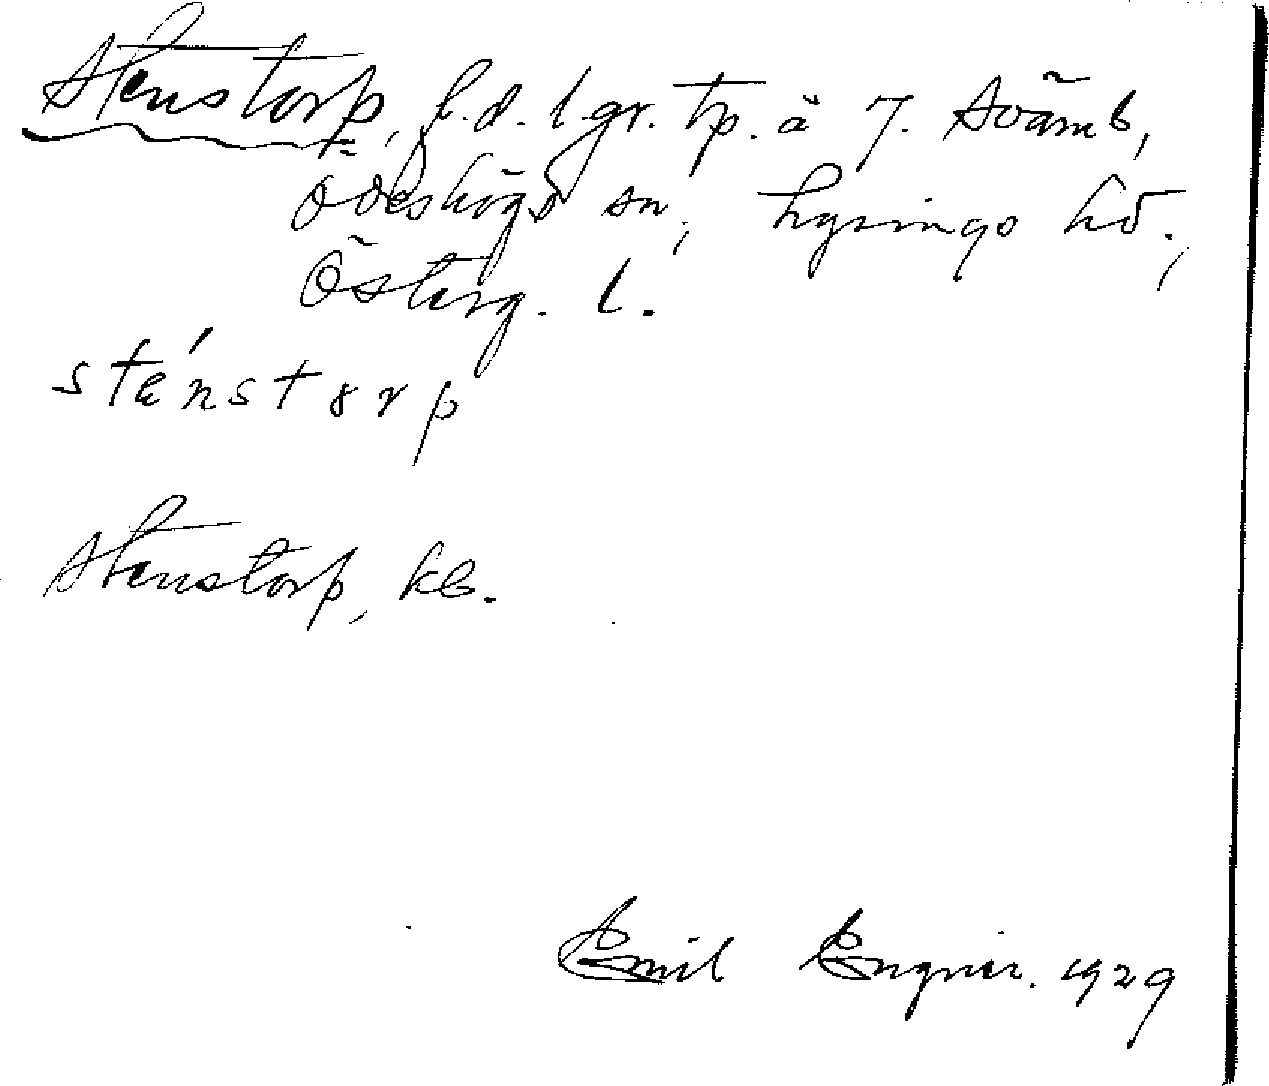 Stenstorp, f.d. lgr. tp. å 7. Svämb,
Ödeshögs sn, Lysings hd.,
Österg. l.
sténstørp
Stenstorp, kb.
Emil Engner. 1929